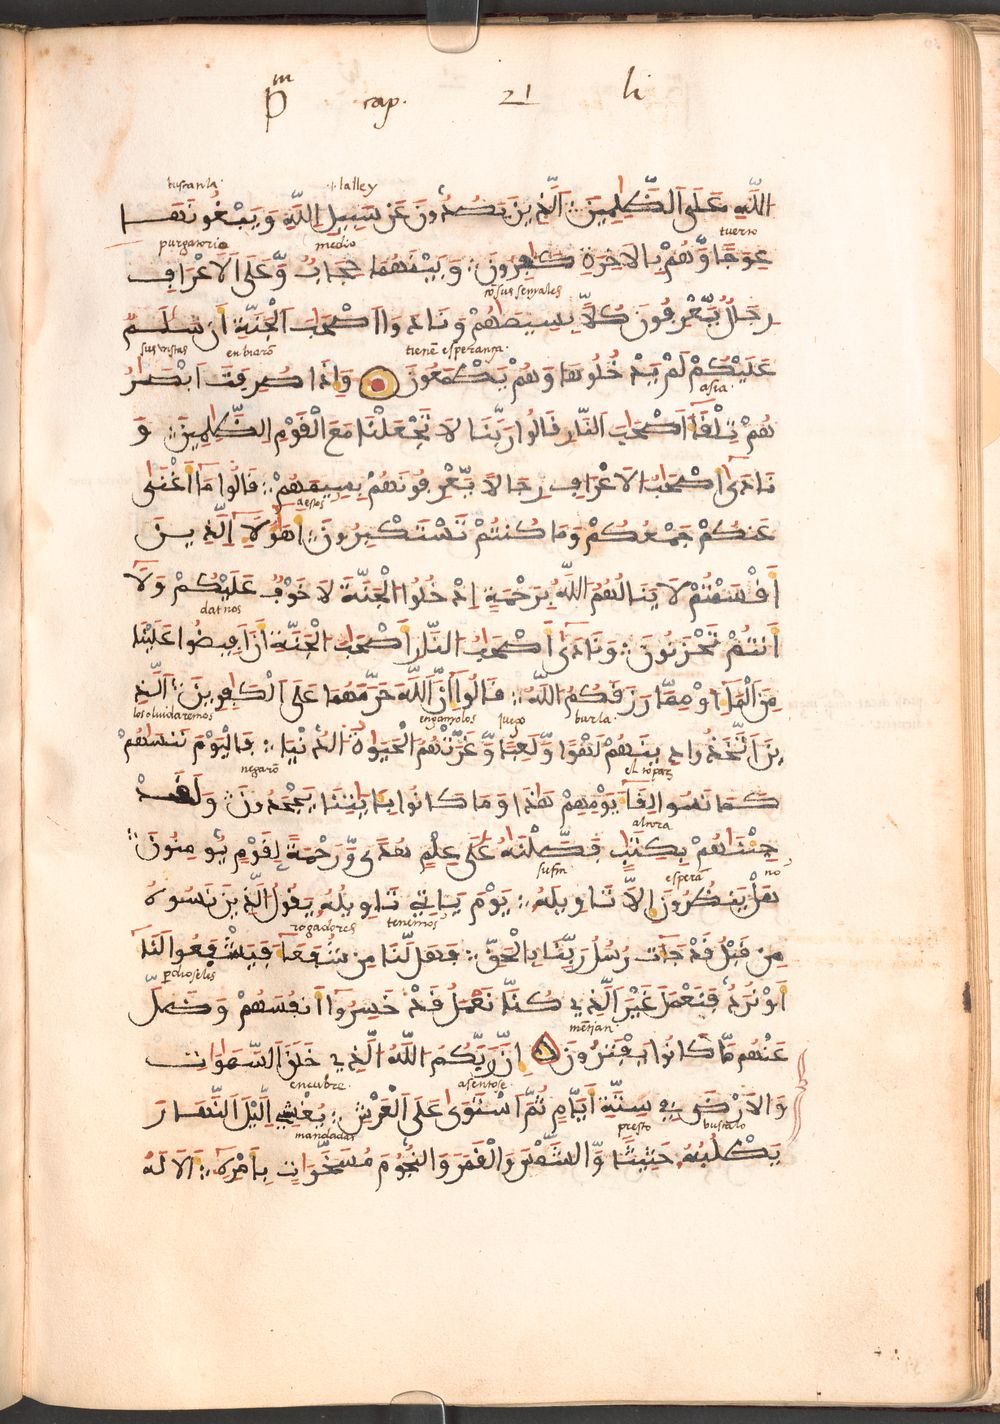 pm cap. 21 li
tueranla · + la lley
اللَّهِ عَلَى الظَّلِمِينَ ۞ الَّذِينَ يَصُدُّونَ عَن سَبِيلِ اللَّهِ وَيَبْغُونَهَا
purgatorio medio tuerto
عِوَجًا وَهُم بِالَاخِرَةِ كَٰفِرُونَ وَبَيْنَهُمَا حِجَابٌ وَّعَلَى الَاعْرَافِ
co sus señales
رِجَالٌ يَّعْرِفُونَ كُلَّا بِسِيمَٰهُمْ وَنَادَوَاْ اَصْحَٰبَ الْجَنَّةِ أَن سَلَٰمٌ
sus vistas entrarō tienē esperança
عَلَيْكُمْ لَمْ يَدْخُلُوهَا وَهُمْ يَطْمَعُونَ وَإِذَا صُرِفَتَ ابْصَٰرُ
asia
هُمْ تِلْقَآءَ اَصْحَٰبِ النَّارِ قَالُوا رَبَّنَا لَا تَجْعَلْنَا مَعَ الْقَوْمِ الظَّٰلِمِينَ وَ
نَادَىٰ أَصْحَٰبُ الَاعْرَافِ رِجَالًا يَّعْرِفُونَهُمْ بِسِيمَٰهُمْ قَالُوا مَا أَغْنَىٰ
aestos
عَنكُمْ جَمْعُكُمْ وَمَا كُنتُمْ تَسْتَكْبِرُونَ أَهَٰؤُلَآءِ الَّذِينَ
أَقْسَمْتُمْ لَا يَنَالُهُمُ اللَّهُ بِرَحْمَةٍ اِدْخُلُوا الْجَنَّةَ لَا خَوْفٌ عَلَيْكُمْ وَلَا
dat nos
أَنتُمْ تَحْزَنُونَ وَنَادَىٰ أَصْحَٰبُ النَّارِ أَصْحَٰبَ الْجَنَّةِ أَنَ اَفِيضُوا عَلَيْنَا
مِنَ الْمَآءِ اَوْ مِمَّا رَزَقَكُمُ اللَّهُ قَالُوا إِنَّ اللَّهَ حَرَّمَهُمَا عَلَى الْكَٰفِرِينَ الَّذِ
los oluidaremos engañolos juego burla
ينَ اَتَّخَذُوا دِينَهُمْ لَهْوًا وَّلَعِبًا وَّغَرَّتْهُمُ الْحَيَوٰةُ الدُّنْيَا فَالْيَوْمَ نَنسَٰهُمْ
negarō el topar
كَمَا نَسُوا لِقَآءَ يَوْمِهِمْ هَٰذَا وَمَا كَانُوا بِـَٔايَٰتِنَا يَجْحَدُونَ وَلَقَدْ
ahora
جِئْنَٰهُمْ بِكِتَٰبٍ فَصَّلْنَٰهُ عَلَىٰ عِلْمٍ هُدًى وَّرَحْمَةً لِّقَوْمٍ يُّومِنُونَ
su fin esperā no
هَلْ يَنظُرُونَ إِلَّا تَاوِيلَهُ يَوْمَ يَاتِي تَاوِيلُهُ يَقُولُ الَّذِينَ نَسُوهُ
rogadores tenemos
مِن قَبْلُ قَدْ جَآءَت رُسُلُ رَبِّنَا بِالْحَقِّ فَهَل لَّنَا مِن شُفَعَآءَ فَيَشْفَعُوا لَنَا
pdioselēs
أَوْ نُرَدُّ فَنَعْمَلَ غَيْرَ الَّذِي كُنَّا نَعْمَلُ قَدْ خَسِرُوا أَنفُسَهُمْ وَضَلَّ
mētian
عَنْهُم مَّا كَانُوا يَفْتَرُونَ إِنَّ رَبَّكُمُ اللَّهُ الَّذِي خَلَقَ السَّمَٰوَٰتِ
encubre asentose
وَالَارْضَ فِي سِتَّةِ أَيَّامٍ ثُمَّ اسْتَوَىٰ عَلَى الْعَرْشِ يُغْشِي الَّيْلَ النَّهَارَ
mandadas presto buscalo
يَطْلُبُهُ حَثِيثًا وَّالشَّمْسَ وَالْقَمَرَ وَالنُّجُومَ مُسَخَّرَٰتٍ بِأَمْرِهِ أَلَا لَهُ